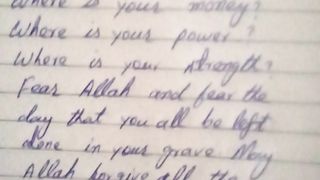 Where is your money?
Where is your power?
Where is your strength?
Fear Allah and fear the
day that you all be left
alone in your grave May
Allah forgive all the